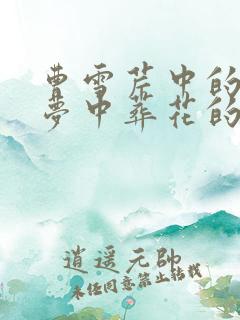 曹雪芹中的
梦中葬花的
逍遥元帅
未经同意禁止转载